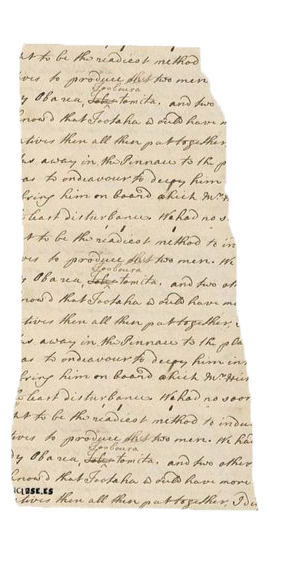 at to be the readiest method
ves to produce that two men
Tooboura
y Obarea, tomita, and two
nowd that Tootaha would have m
atives then all then put together
us away in the Pinnace to the p
as to endeavour to decoy him
bring him on board which Mr H
least disturbance We had no s
t to be the readiest method to in
ves to produce that two men. We
Tooboura
y Obarea, tomita, and two ot
nowd that Tootaha would have mo
tives then all then put together,
s away in the Pinnace to the pla
as to endeavour to decoy him in
bring him on board which Mr Hi
least disturbance We had no soon
at to be the readiest method to indu
ives to produce that two men. We ha
Tooboura
by Obarea, tomita, and two other
knowd that Tootaha would have more
CLOSE.ES
tives then all then put together, I d